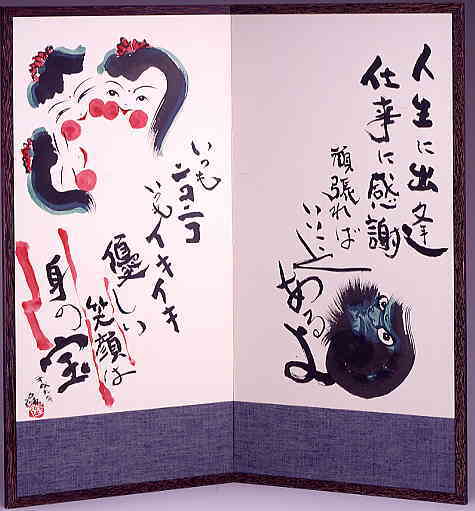 人生に出逢
仕事に感謝
頑張れば
いいこと
あるよ
いつも
ニコニコ
いつも
イキイキ
優しい
笑顔は
身の
宝